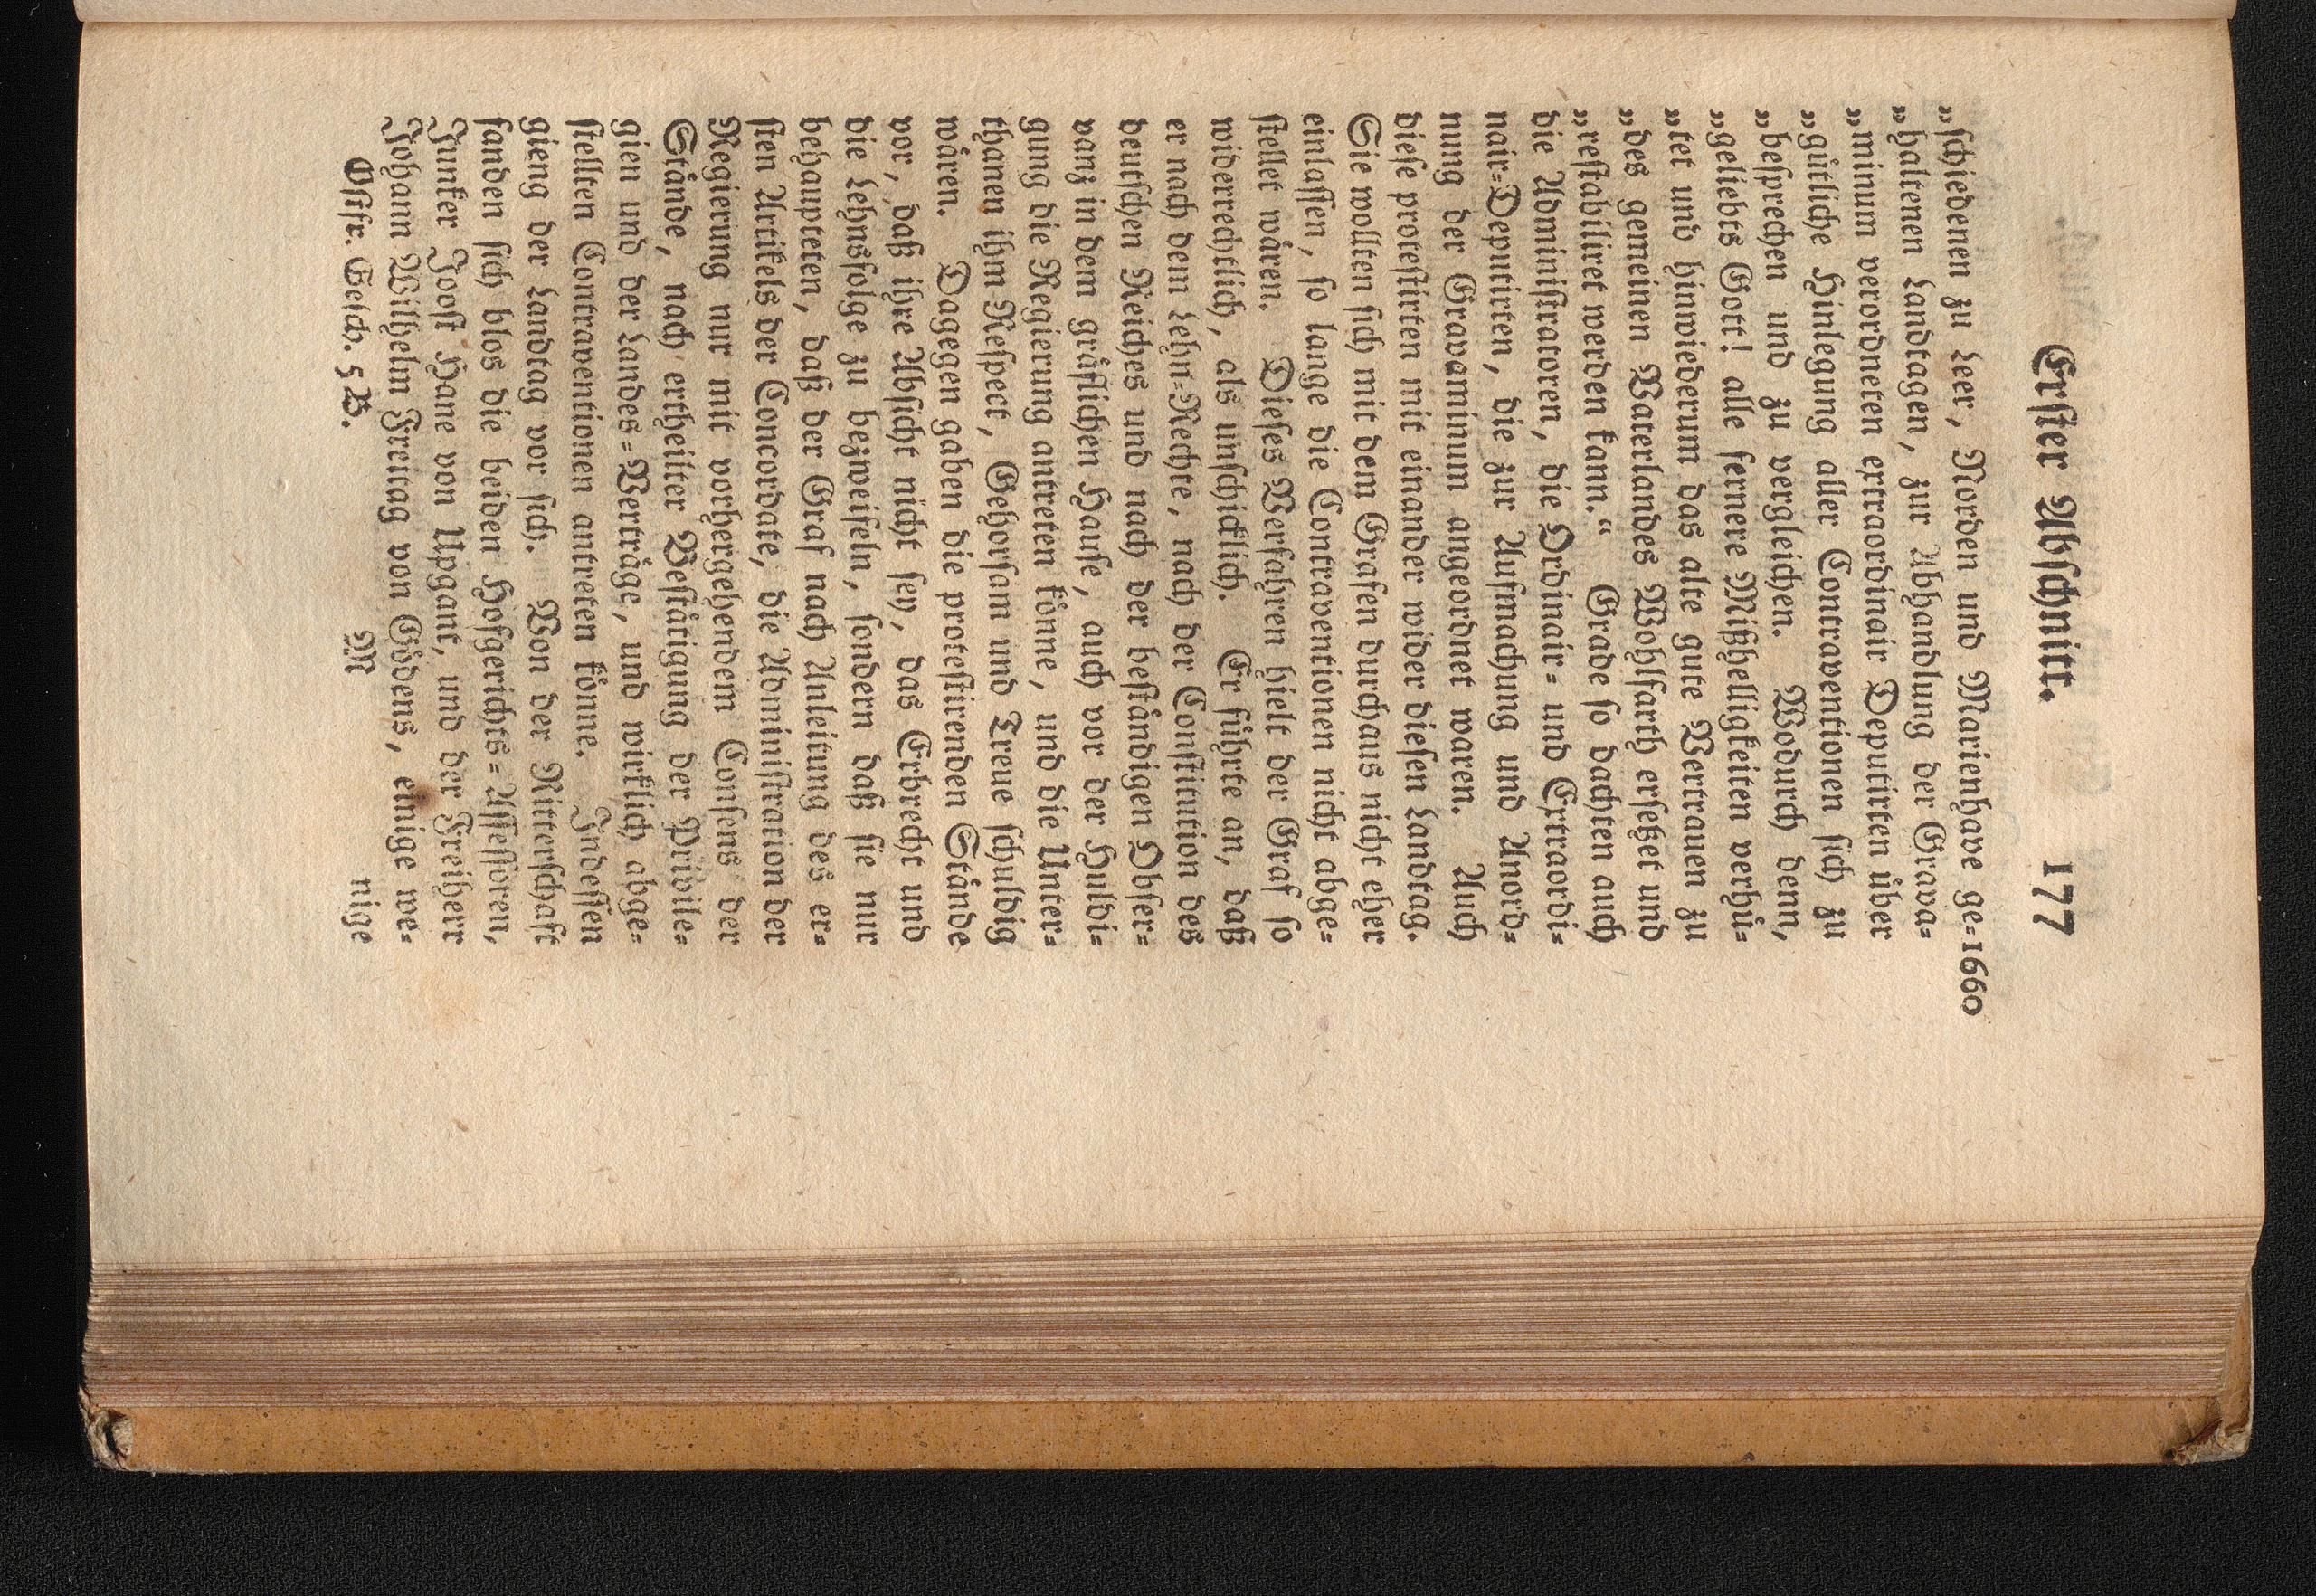 Erster Abschnitt. 177
„schiedenen zu Leer, Norden und Marienhave ge= 1660
„haltenen Landtagen, zur Abhandlung der Grava=
„minum verordneten extraordinair Deputirten über
„gütliche Hinlegung aller Contraventionen sich zu
„besprechen und zu vergleichen. Wodurch denn,
„geliebts Gott! alle fernere Mißhelligkeiten verhü=
„tet und hinwiederum das alte gute Vertrauen zu
„des gemeinen Vaterlandes Wohlfarth ersetzet und
„restabiliret werden kann.“ Grade so dachten auch
die Administratoren, die Ordinair= und Extraordi=
nair=Deputirten, die zur Aufmachung und Anord=
nung der Gravaminum angeordnet waren. Auch
diese protestirten mit einander wider diesen Landtag.
Sie wollten sich mit dem Grafen durchaus nicht eher
einlassen, so lange die Contraventionen nicht abge=
stellet wären. Dieses Verfahren hielt der Graf so
widerrechtlich, als unschicklich. Er führte an, daß
er nach dem Lehn=Rechte, nach der Constitution des
deutschen Reiches und nach der beständigen Obser=
vanz in dem gräflichen Hause, auch vor der Huldi=
gung die Regierung antreten könne, und die Unter=
thanen ihm Respect, Gehorsam und Treue schuldig
wären. Dagegen gaben die protestirenden Stände
vor, daß ihre Absicht nicht sey, das Erbrecht und
die Lehnsfolge zu bezweifeln, sondern daß sie nur
behaupteten, daß der Graf nach Anleitung des er=
sten Artikels der Concordate, die Administration der
Regierung nur mit vorhergehendem Consens der
Stände, nach ertheilter Bestätigung der Privile=
gien und der Landes=Verträge, und wirklich abge=
stellten Contraventionen antreten könne. Indessen
gieng der Landtag vor sich. Von der Ritterschaft
fanden sich blos die beiden Hofgerichts=Assessoren,
Junker Joost Hane von Upgant, und der Freiherr
Johann Wilhelm Freitag von Gödens, einige we=
Ostfr. Gesch. 5 B. M nige